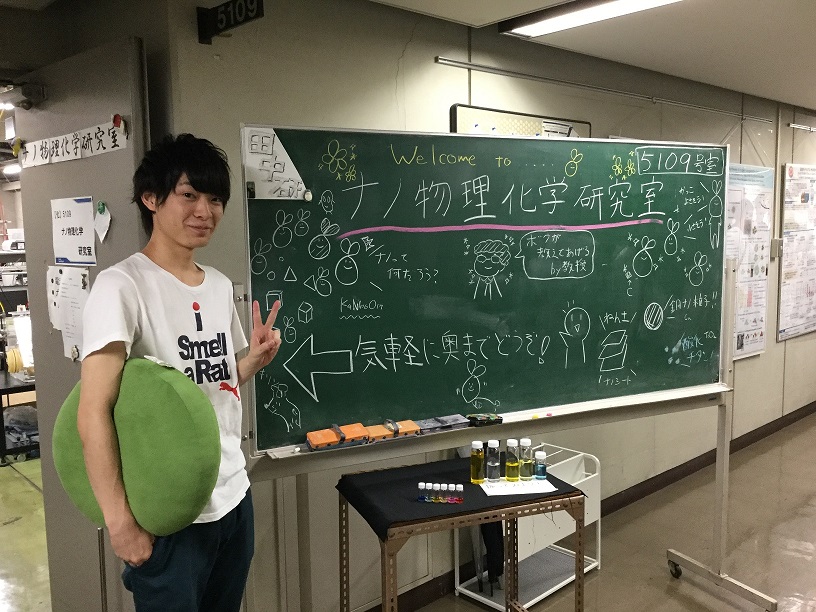 5109
ナノ物理化学研究室
5109
ナノ物理化学
研究室
i
Smell
a Rat
Welcome to ......
5109号室
ナノ物理化学研究室
ナノって
何だろう?
ボクが
教えてあげよう
by教授
気軽に奥までどうぞ!
ねんど
ナノシート
チタン